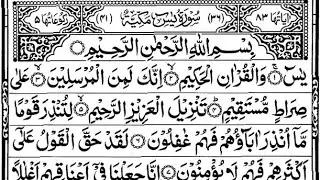 اٰیاتها ٨٣ (٣٦) سُوْرَةُ يٰسٓ مَكِّيَّةٌ (٤١) رکوعاتها ٥
بِسْمِ اللّٰهِ الرَّحْمٰنِ الرَّحِيْمِ
يٰسٓ ۝١ وَالْقُرْاٰنِ الْحَكِيْمِ ۝٢ اِنَّكَ لَمِنَ الْمُرْسَلِيْنَ ۝٣ عَلٰى
صِرَاطٍ مُّسْتَقِيْمٍ ۝٤ تَنْزِيْلَ الْعَزِيْزِ الرَّحِيْمِ ۝٥ لِتُنْذِرَ قَوْمًا
مَّاۤ اُنْذِرَ اٰبَآؤُهُمْ فَهُمْ غٰفِلُوْنَ ۝٦ لَقَدْ حَقَّ الْقَوْلُ عَلٰۤى
اَكْثَرِهِمْ فَهُمْ لَا يُؤْمِنُوْنَ ۝٧ اِنَّا جَعَلْنَا فِيْۤ اَعْنَاقِهِمْ اَغْلٰلًا